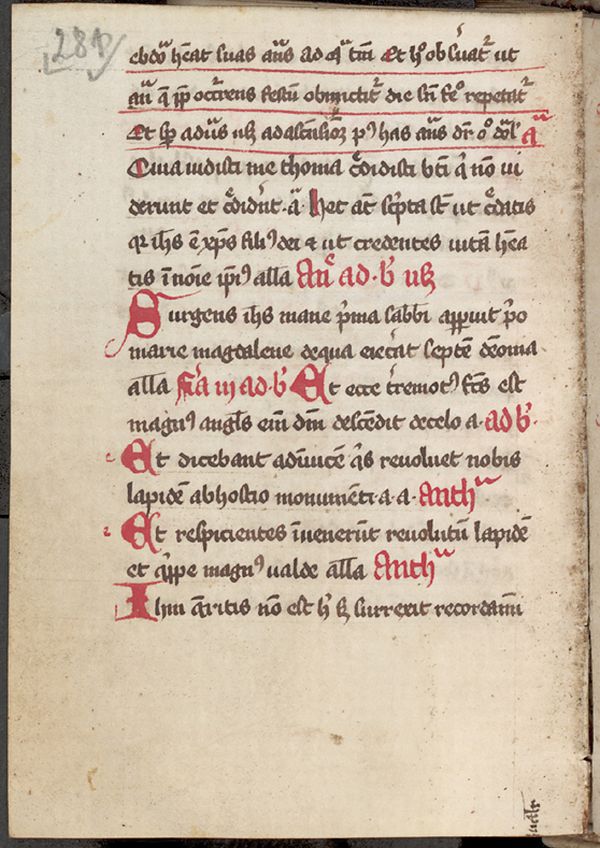 281
ebdoa hēat suas añs ad qa tm̄ Et h' obs'uatr ut
aū q̄ ip̄p occ'rens festū obmictitr die sr̄i fe' repetatr
Et sp̄ adūs usq ad ascēsiōz p' has añs dr o' dōl' A
Quia uidisti me thoma c'didisti bt̄i q̄ nō ui
derunt et c'did'nt · a · hec aūt sc'pta st̄ ut c'datis
q' ihs ē xp̄s fili' dei et ut credentes uitā hēa
tis ī noīe ip̄i' alla Añ ad · b' usq
Surgens ihs mane p'ma sabb̄i apparuit p'o
marie magdalene de qua eiec'at septē dēonia
alla f'ia iij ad · b' Et ecce t'remot' fc̄s est
magn' angl's eiū dn̄i descēdit de celo a · ad b' ·
Et dicebant ad īuicē q's reuoluet nobis
lapidē ab hostio monumēti · a · a · Antha
Et respicientes īuenerūt reuolutū lapidē
et q'ppe magn' ualde alla Antha
Ihm q̄ritis nō est h' sz surrexit recordam̄i